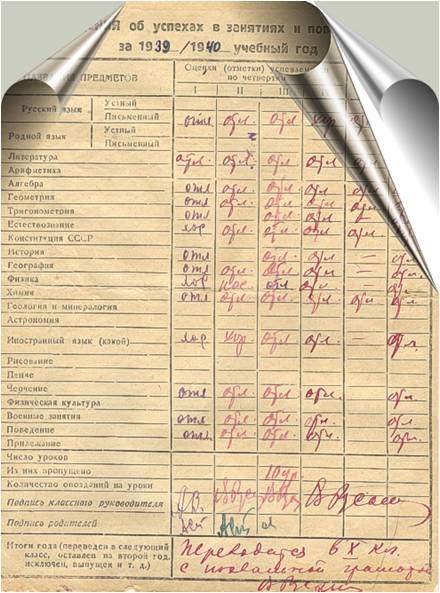 ИЯ об успехах в занятиях и пов
за 1939/1940 учебный год
НАЗВАНИЯ ПРЕДМЕТОВ
Оценки (отметки) успеваем
по четвертям
I II III
Русский язык Устный
Письменный отл отл. отл хор
Родной язык Устный
Письменный
Литература отл. отл. отл отл
Арифметика
Алгебра отл отл. отл отл отл
Геометрия отл отл. отл отл отл
Тригонометрия отл отл отл
Естествознание хор отл. отл отл отл
Конституция СССР
История отл отл отл — отл
География отл отл. отл отл — отл
Физика хор отл
Химия отл отл. отл отл отл отл
Геология и минералогия
Астрономия
Иностранный язык (какой) хор хор отл отл — отл.
Рисование
Пение
Черчение отл отл. отл отл. отл
Физическая культура
Военные занятия отл отл. отл отл. отл.
Поведение отл. отл. отл отл отл.
Прилежание
Число уроков
Из них пропущено 10 ур.
Количество опозданий на уроки
Подпись классного руководителя
Подпись родителей
Итоги года (переведен в следующий Переводится в X кл.
класс, оставлен на второй год, с похвальной грамотой
исключен, выпущен и т. д.)